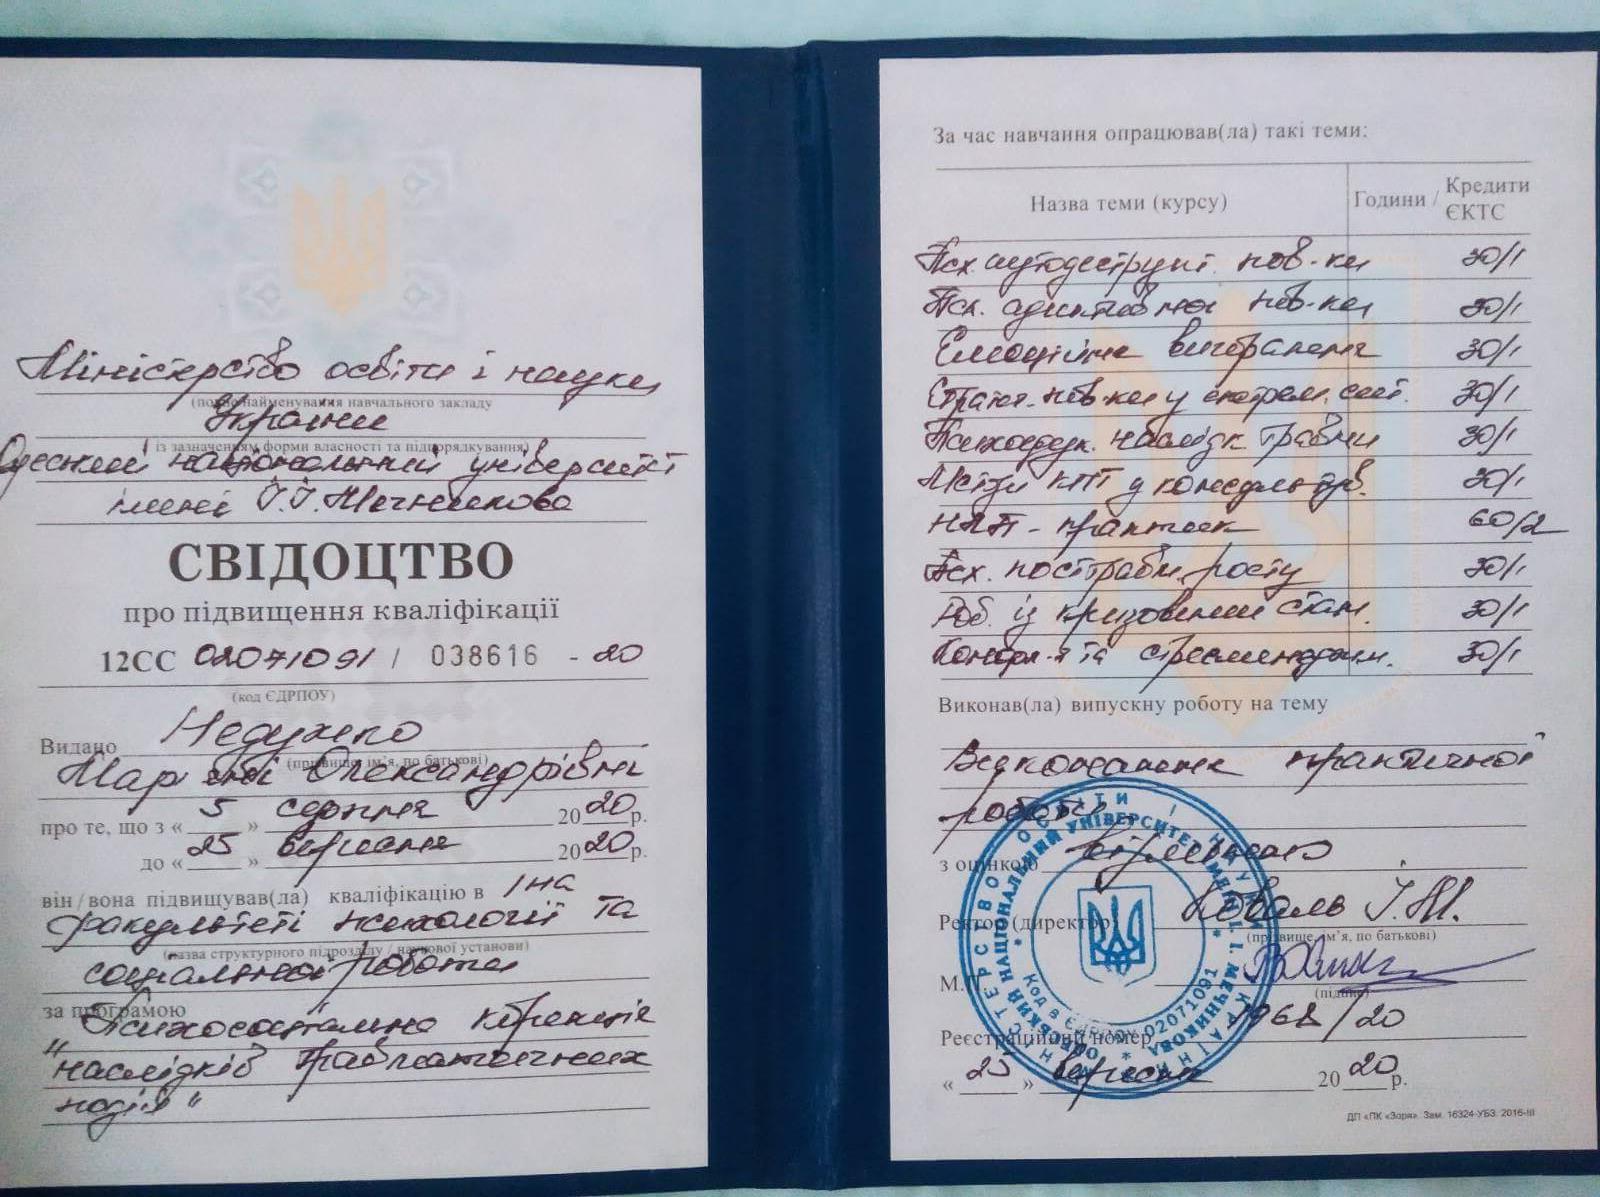 Міністерство освіти і науки
(повне найменування навчального закладу
України
із зазначенням форми власності та підпорядкування)
Одеський національний університет
імені І.І.Мечникова
СВІДОЦТВО
про підвищення кваліфікації
12СС 02071091 / 038616 - 20
(код ЄДРПОУ)
Видано Недухепо
(прізвище, ім’я, по батькові)
Олександрівні
про те, що з « 5 » серпня 2020 р.
до « 25 » вересня 2020 р.
він / вона підвищував(ла) кваліфікацію в на
факультеті психології та
(назва структурного підрозділу / наукової установи)
соціальної роботи
за програмою
"Психосоціальна корекція
наслідків травматичних
подій"
За час навчання опрацював(ла) такі теми:
Назва теми (курсу) Години / Кредити ЄКТС
Псх. аутодеструкт. пов-ки 30/1
Псх. адиктивної пов-ки 30/1
Емоційне вигорання 30/1
пов-ки у екстрем. сит. 30/1
наслідк травми 30/1
КПТ у 30/1
НЛП - практик 60/2
Псх. посттравм. росту 30/1
Роб. із кризовими стан. 30/1
та стресменеджм. 30/1
Виконав(ла) випускну роботу на тему
Виконання практичної
роботи
з оцінкою відмінно
Ректор (директор) Коваль І.М.
(прізвище, ім’я, по батькові)
М.П.
(підпис)
Реєстраційний номер /20
« 25 » вересня 2020 р.
МІНІСТЕРСТВО ОСВІТИ І НАУКИ УКРАЇНИ
ОДЕСЬКИЙ НАЦІОНАЛЬНИЙ УНІВЕРСИТЕТ ІМЕНІ І. І. МЕЧНИКОВА
Код в ЄДРПОУ 02071091
ДП «ПК «Зоря». Зам. 16324-УБЗ. 2016-ІІІ